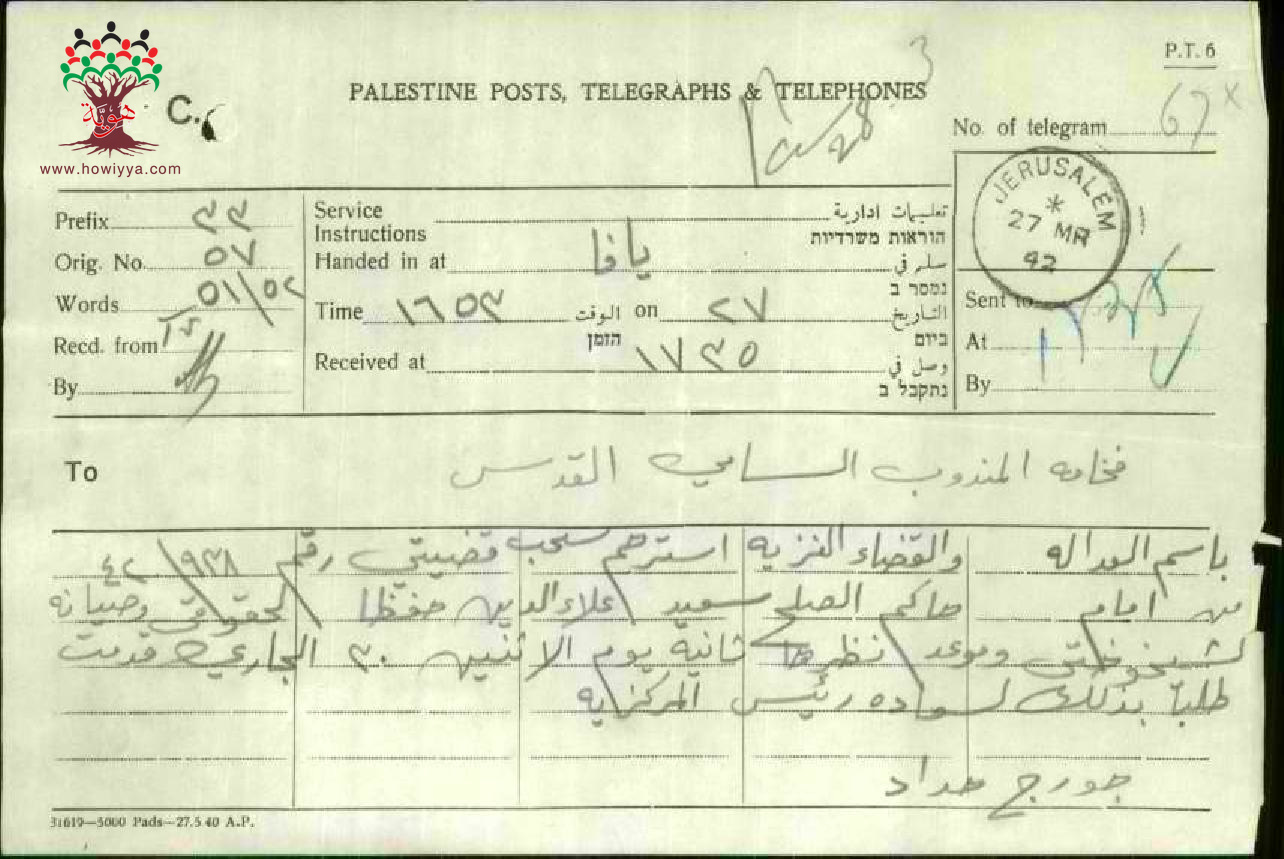 هوية
www.howiyya.com
C.
P.T. 6
PALESTINE POSTS, TELEGRAPHS & TELEPHONES
3
No. of telegram 67 x
JERUSALEM
*
27 MR
42
Prefix ٣٣
Orig. No. ٥٧
Words ٥١/٥٢
Recd. from
By
Service Instructions تعليمات ادارية
הוראות משרדיות
Handed in at يافا سلم في
נמסר ב
Time ١٦٥٣ الوقت on ٢٧ التاريخ
הזמן ביום
Received at ١٧٣٥ وصل في
נתקבל ב
Sent to
At
By
To فخامه المندوب السامي القدس
باسم العداله والقضاء النزيه استرحم سحب قضيتي رقم ٩٣٨/٤٢
من امام حاكم الصلح سعيد علاء الدين حفظا لحقوقي وصيانه
لشيخوختي وموعد نظرها ثانية يوم الاثنين ٣٠ الجاري قدمت
طلباً بذلك لسعاده رئيس المركزيه
جورج حداد
31619—5000 Pads—27.5.40 A.P.